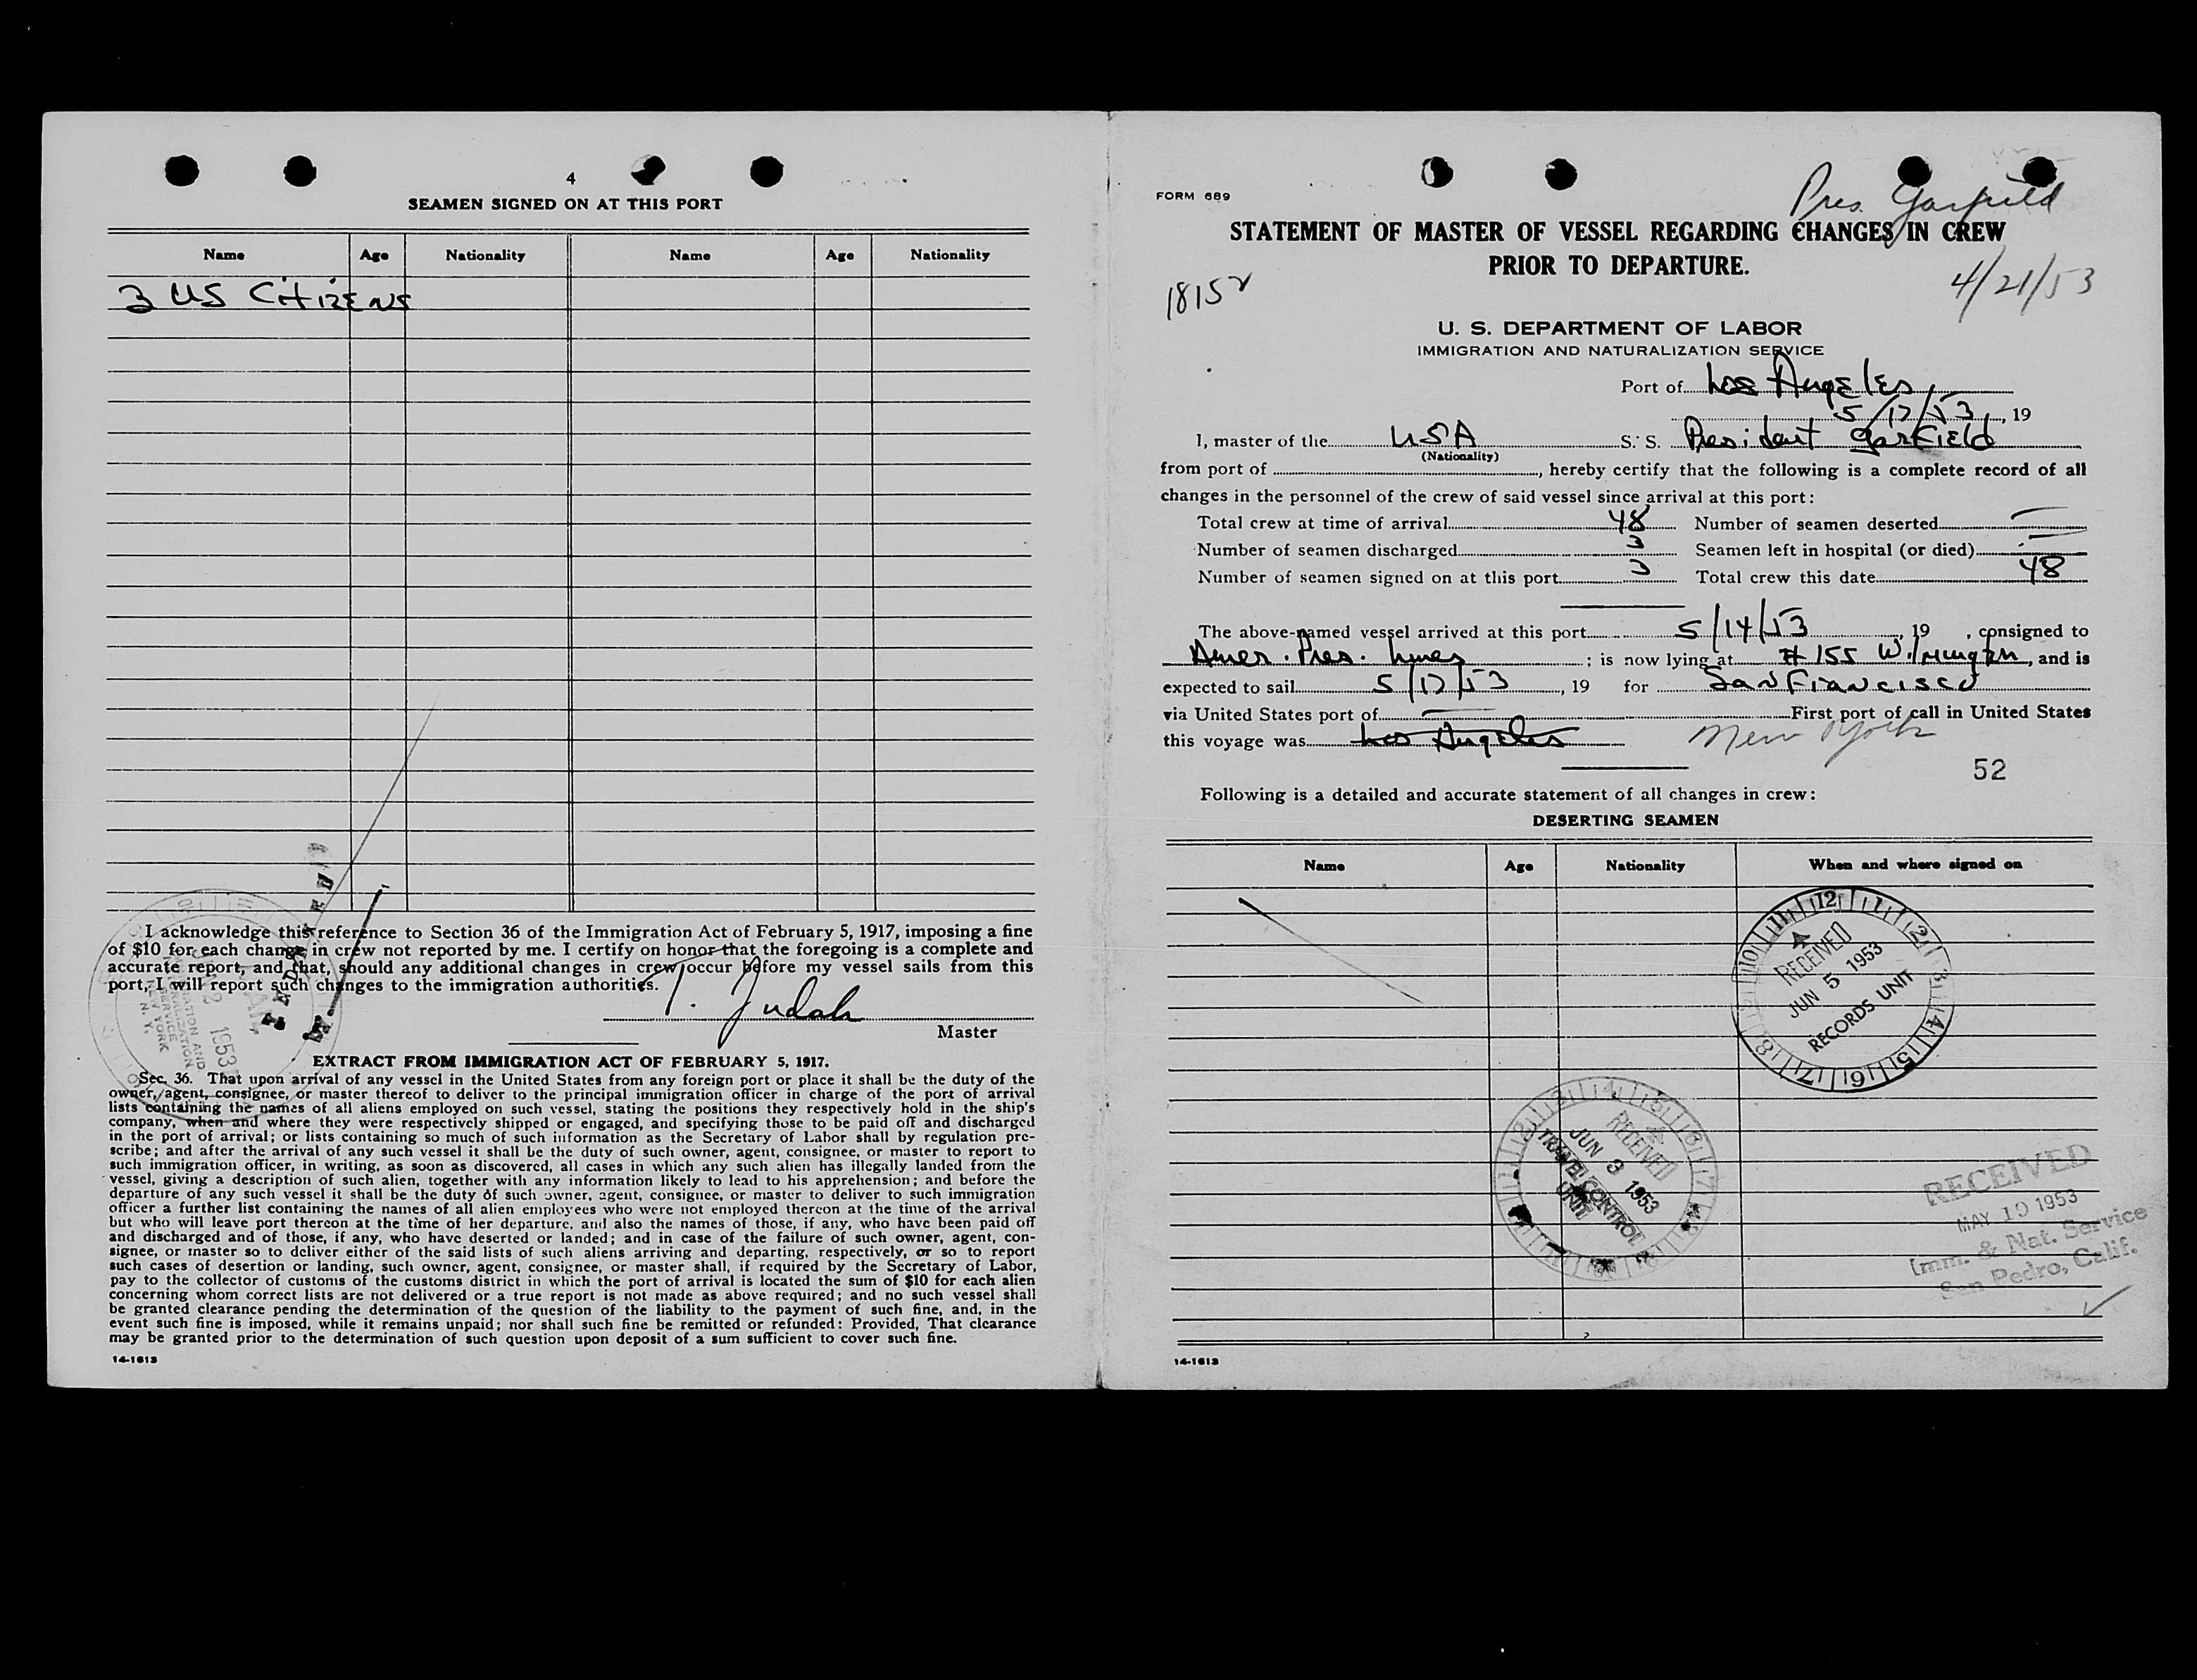 4
SEAMEN SIGNED ON AT THIS PORT
Name Age Nationality Name Age Nationality
3 US CitizENS
I acknowledge this reference to Section 36 of the Immigration Act of February 5, 1917, imposing a fine
of $10 for each change in crew not reported by me. I certify on honor that the foregoing is a complete and
accurate report, and that, should any additional changes in crew occur before my vessel sails from this
port, I will report such changes to the immigration authorities.
Judah
Master
EXTRACT FROM IMMIGRATION ACT OF FEBRUARY 5, 1917.
Sec. 36. That upon arrival of any vessel in the United States from any foreign port or place it shall be the duty of the
owner, agent, consignee, or master thereof to deliver to the principal immigration officer in charge of the port of arrival
lists containing the names of all aliens employed on such vessel, stating the positions they respectively hold in the ship's
company, when and where they were respectively shipped or engaged, and specifying those to be paid off and discharged
in the port of arrival; or lists containing so much of such information as the Secretary of Labor shall by regulation pre-
scribe; and after the arrival of any such vessel it shall be the duty of such owner, agent, consignee, or master to report to
such immigration officer, in writing, as soon as discovered, all cases in which any such alien has illegally landed from the
vessel, giving a description of such alien, together with any information likely to lead to his apprehension; and before the
departure of any such vessel it shall be the duty of such owner, agent, consignee, or master to deliver to such immigration
officer a further list containing the names of all alien employees who were not employed thereon at the time of the arrival
but who will leave port thereon at the time of her departure, and also the names of those, if any, who have been paid off
and discharged and of those, if any, who have deserted or landed; and in case of the failure of such owner, agent, con-
signee, or master so to deliver either of the said lists of such aliens arriving and departing, respectively, or so to report
such cases of desertion or landing, such owner, agent, consignee, or master shall, if required by the Secretary of Labor,
pay to the collector of customs of the customs district in which the port of arrival is located the sum of $10 for each alien
concerning whom correct lists are not delivered or a true report is not made as above required; and no such vessel shall
be granted clearance pending the determination of the question of the liability to the payment of such fine, and, in the
event such fine is imposed, while it remains unpaid; nor shall such fine be remitted or refunded: Provided, That clearance
may be granted prior to the determination of such question upon deposit of a sum sufficient to cover such fine.
14-1613
FORM 689
Pres. Garfield
STATEMENT OF MASTER OF VESSEL REGARDING CHANGES IN CREW
PRIOR TO DEPARTURE.
18152
4/21/53
U. S. DEPARTMENT OF LABOR
IMMIGRATION AND NATURALIZATION SERVICE
Port of Los Angeles,
5/17/53, 19
I, master of the USA S. S. President Garfield
(Nationality)
from port of , hereby certify that the following is a complete record of all
changes in the personnel of the crew of said vessel since arrival at this port:
Total crew at time of arrival 48 Number of seamen deserted —
Number of seamen discharged 3 Seamen left in hospital (or died) —
Number of seamen signed on at this port 3 Total crew this date 48
The above-named vessel arrived at this port 5/14/53, 19 , consigned to
Amer. Pres. Lines ; is now lying at # 155 Wilmington, and is
expected to sail 5/17/53, 19 for San Francisco
via United States port of — First port of call in United States
this voyage was Los Angeles New York
52
Following is a detailed and accurate statement of all changes in crew:
DESERTING SEAMEN
Name Age Nationality When and where signed on
RECEIVED
JUN 5 1953
RECORDS UNIT
RECEIVED
JUN 3 1953
TRAVEL CONTROL
UNIT
RECEIVED
MAY 19 1953
Imm. & Nat. Service
San Pedro, Calif.
14-1613